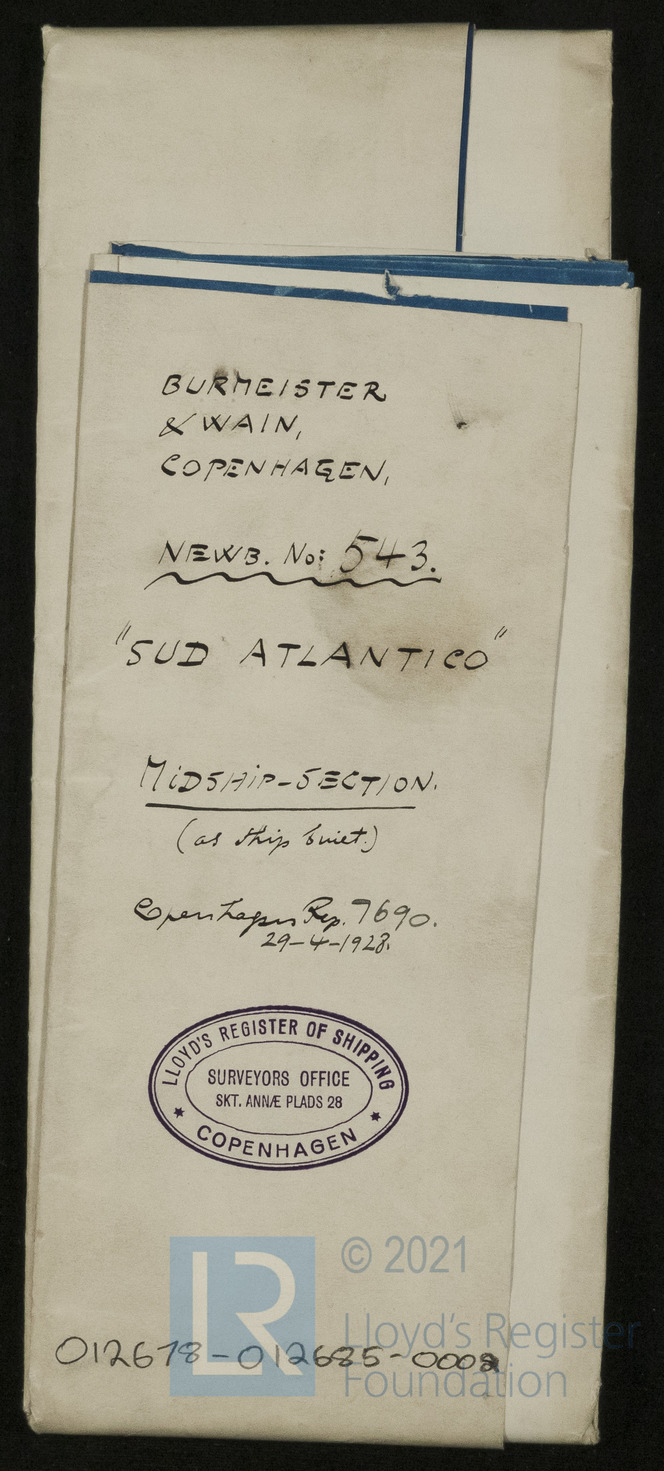 BURMEISTER
& WAIN,
COPENHAGEN,
NEWB. No: 543.
"SUD ATLANTICO"
MIDSHIP-SECTION.
(as ship built.)
Copenhagen Rep. 7690.
29-4-1928.
LLOYD'S REGISTER OF SHIPPING
SURVEYORS OFFICE
SKT. ANNÆ PLADS 28
COPENHAGEN
LR
© 2021
Lloyd's Register
Foundation
012678-012685-0002